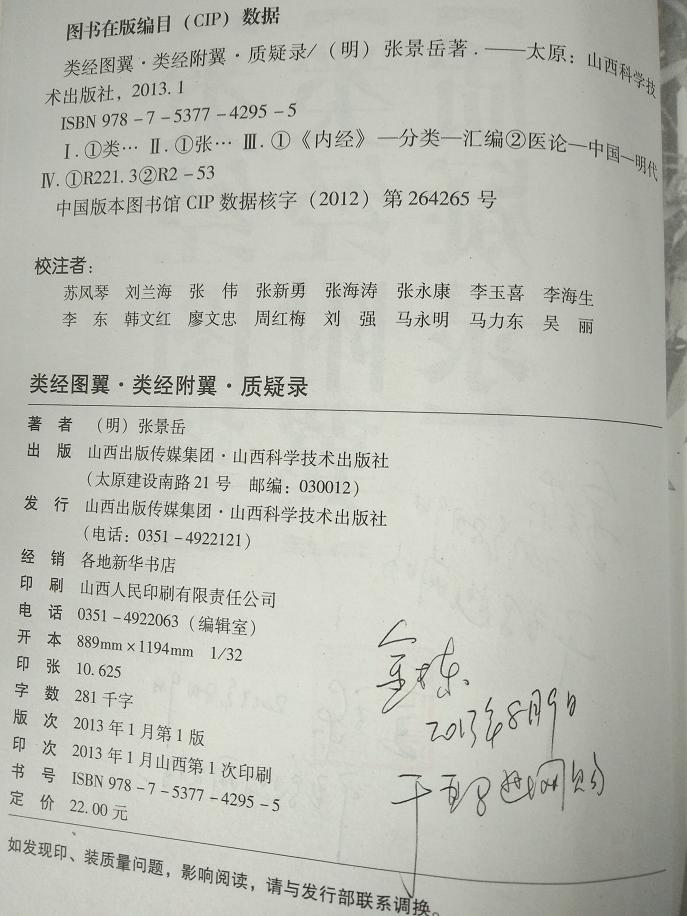 图书在版编目（CIP）数据
类经图翼·类经附翼·质疑录/（明）张景岳著.——太原：山西科学技
术出版社，2013.1
ISBN 978-7-5377-4295-5
Ⅰ.①类… Ⅱ.①张… Ⅲ.①《内经》—分类—汇编②医论—中国—明代
Ⅳ.①R221.3②R2-53
中国版本图书馆CIP数据核字（2012）第264265号
校注者：
苏凤琴 刘兰海 张 伟 张新勇 张海涛 张永康 李玉喜 李海生
李 东 韩文红 廖文忠 周红梅 刘 强 马永明 马力东 吴 丽
类经图翼·类经附翼·质疑录
著 者 （明）张景岳
出 版 山西出版传媒集团·山西科学技术出版社
（太原建设南路21号 邮编：030012）
发 行 山西出版传媒集团·山西科学技术出版社
（电话：0351-4922121）
经 销 各地新华书店
印 刷 山西人民印刷有限责任公司
电 话 0351-4922063（编辑室）
开 本 889mm×1194mm 1/32
印 张 10.625
字 数 281千字
版 次 2013年1月第1版
印 次 2013年1月山西第1次印刷
书 号 ISBN 978-7-5377-4295-5
定 价 22.00元
金栋
2013年8月9日
于 网购
如发现印、装质量问题，影响阅读，请与发行部联系调换。